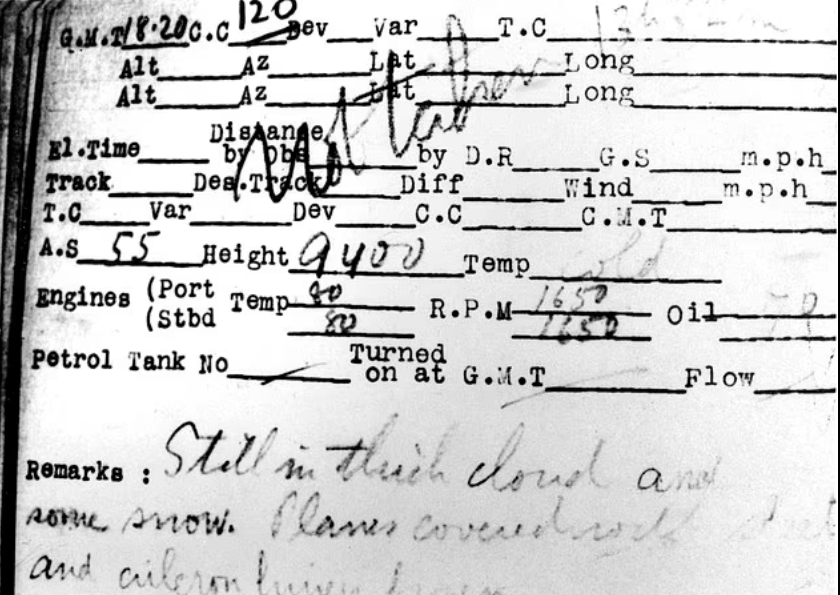 G.M.T 18.20 C.C 120 Dev Var T.C
Alt Az Lat Long
Alt Az Lat Long
Not taken
Distance
El.Time by Obs by D.R G.S m.p.h
Track Des.Track Diff Wind m.p.h
T.C Var Dev C.C C.M.T
A.S 55 Height 9400 Temp cold
Engines (Port Temp 80 R.P.M 1650 Oil
(Stbd 80 1650
Petrol Tank No Turned
on at G.M.T Flow
Remarks : Still in thick cloud and
some snow. Planes covered with
and